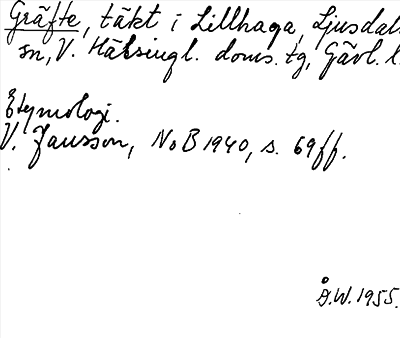 Gräfte, täkt i Lillhaga, Ljusdals
sn, V. Hälsingl. doms. tg, Gävl. l.
Etymologi.
V. Jansson, NoB 1940, s. 69ff.
Å.W. 1955.